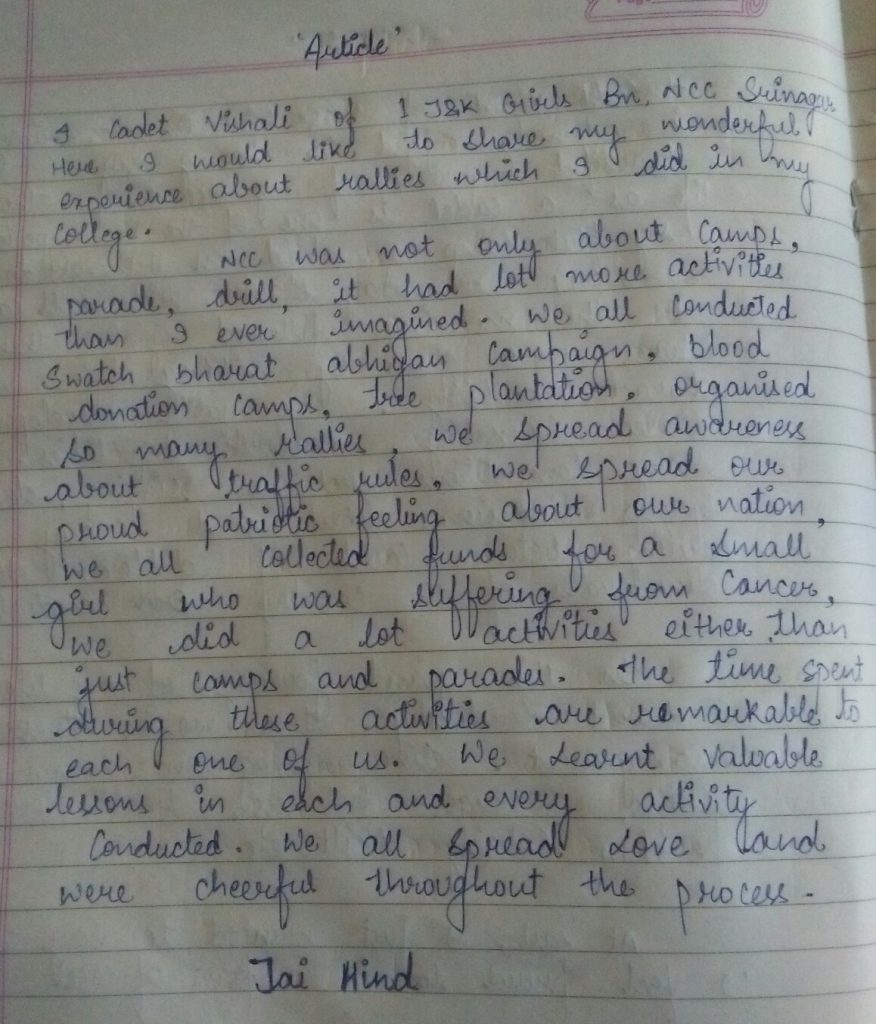 'Article'
I Cadet Vishali of 1 J&K Girls Bn, NCC Srinagar
Here I would like to share my wonderful
experience about rallies which I did in my
College.
NCC was not only about Camps,
parade, drill, it had lot more activities
than I ever imagined. We all conducted
Swatch bharat abhigan Campaign, blood
donation camps, tree plantation, organised
so many rallies, we spread awareness
about traffic rules, we spread our
proud patriotic feeling about our nation,
we all collected funds for a small
girl who was suffering from Cancer,
we did a lot activities either than
just camps and parades. The time spent
during these activities are remarkable to
each one of us. We learnt valuable
lessons in each and every activity
Conducted. We all spread love and
were cheerful throughout the process.
Jai Hind